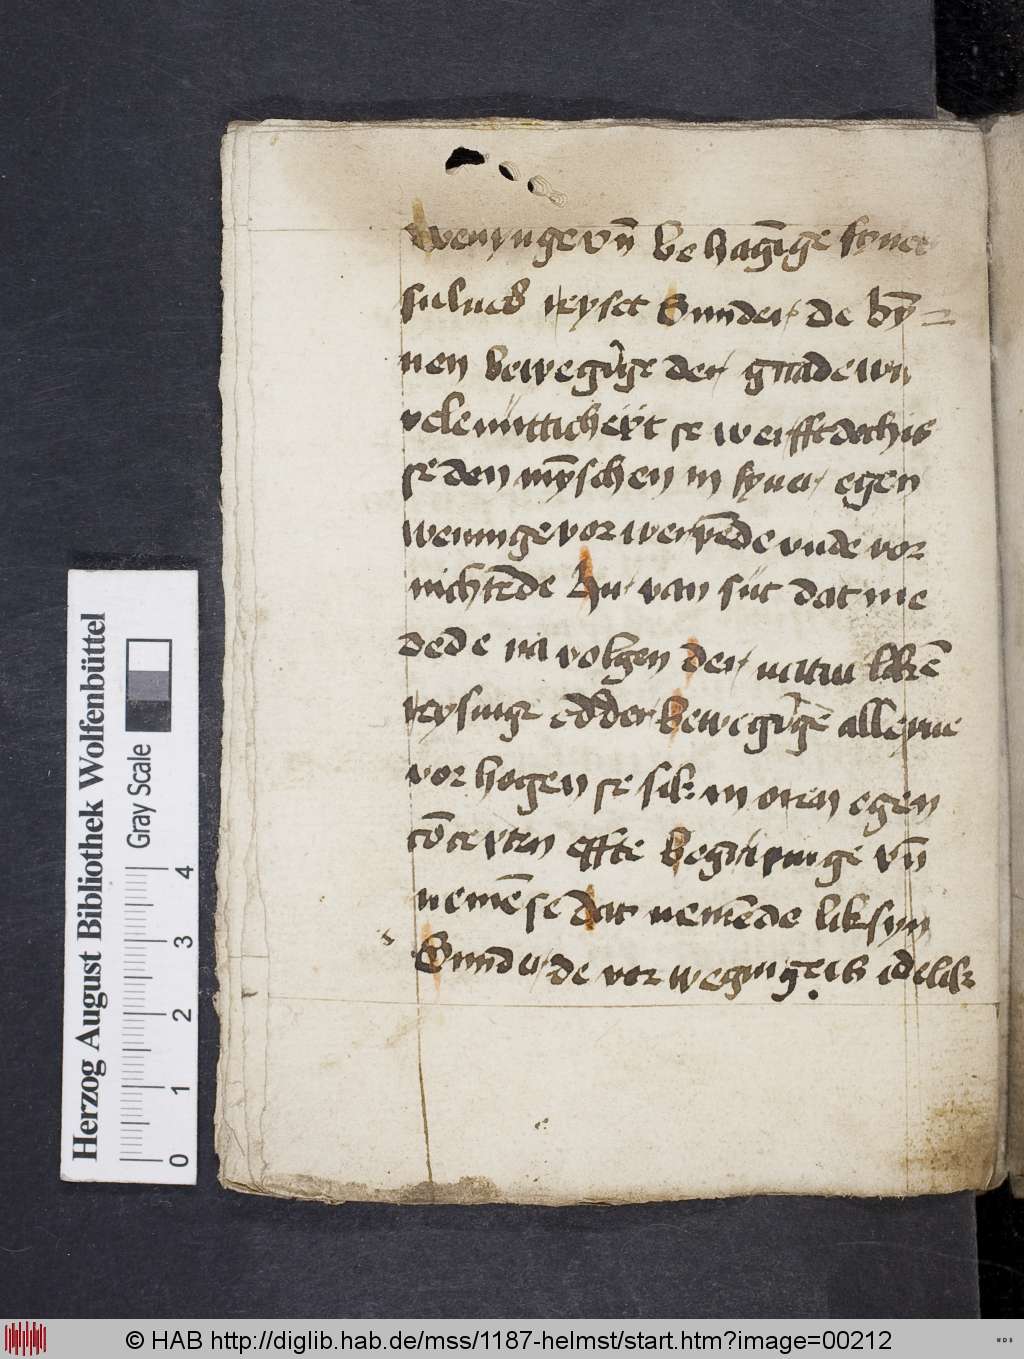 wenynge vn̄ be hag̅ige syner
sulues reyset Sunder de by̅=
nen bewegu̅ge der gnade wu
vele nutticheyt se werfft doch is
se den my̅schen in syner egen
weninge vor werpe̅de vnde vor
nichte̅de Hir van sut dat me
dede na volgen der natur like̅
reysinge edder bewegi̅ge alleyne
vor hogen se sik in oren egen
co̅cepten effte begripinge vn̄
neme̅ se dat neme̅de lik syn
Sunder de vor weginge is edelik
Herzog August Bibliothek Wolfenbüttel
Gray Scale
0 1 2 3 4
© HAB http://diglib.hab.de/mss/1187-helmst/start.htm?image=00212
WDB